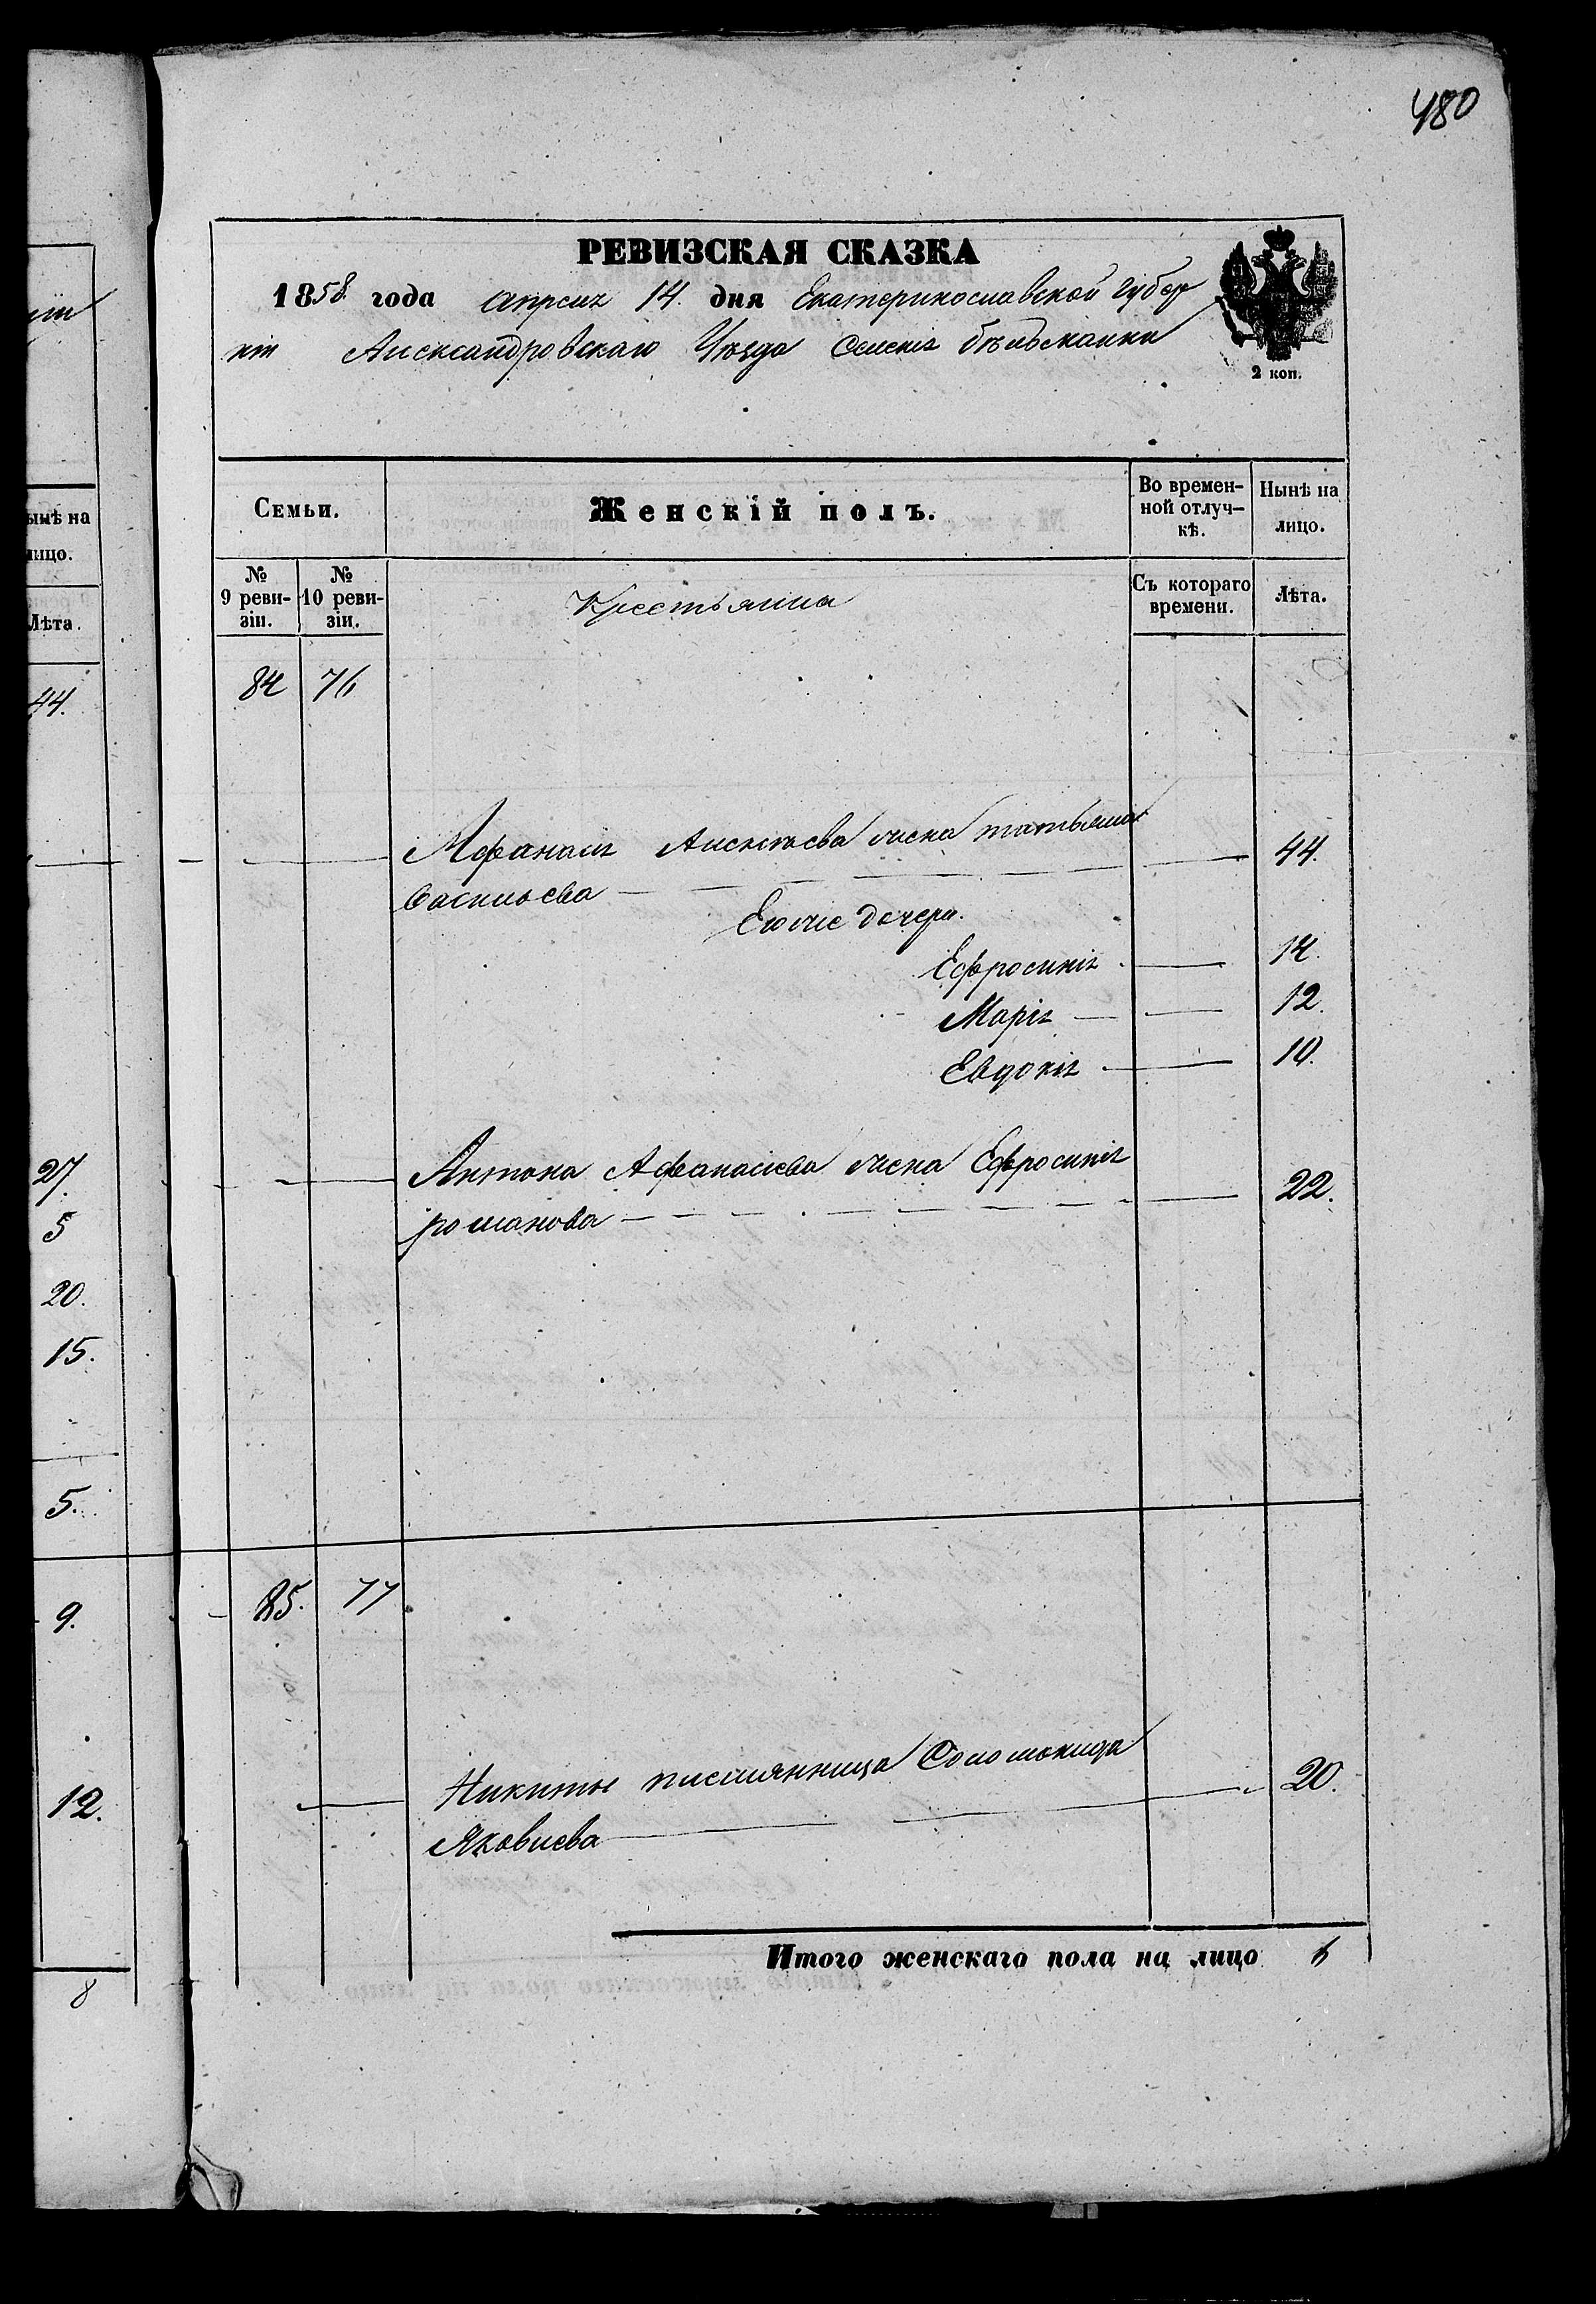 480
РЕВИЗСКАЯ СКАЗКА
1858 года апреля 14. дня Екатеринославской Губер
нiи Александровскаго Уѣзда Селенiя бѣлъманки
2 коп.
Семьи.
Женскiй полъ.
Во времен-
ной отлуч-
кѣ.
Нынѣ на
лицо.
№
9 реви-
зiи.
№
10 реви-
зiи.
Крестьянина
Съ котораго
времени.
Лѣта.
84 76
Афанасiя Алексѣева жена татьяна 44.
васильева
Егоже дочери.
Ефросинiя 14.
Марiя 12.
Евдокiя 10.
Антона Афанасiева жена Ефросинiя 22.
романова
85. 77
Никиты племянница Соломонида 20.
Яковлева
Итого женскаго пола на лицо 6
ынѣ на
лицо.
Лѣта.
44.
27.
5
20.
15.
5.
9.
12.
8